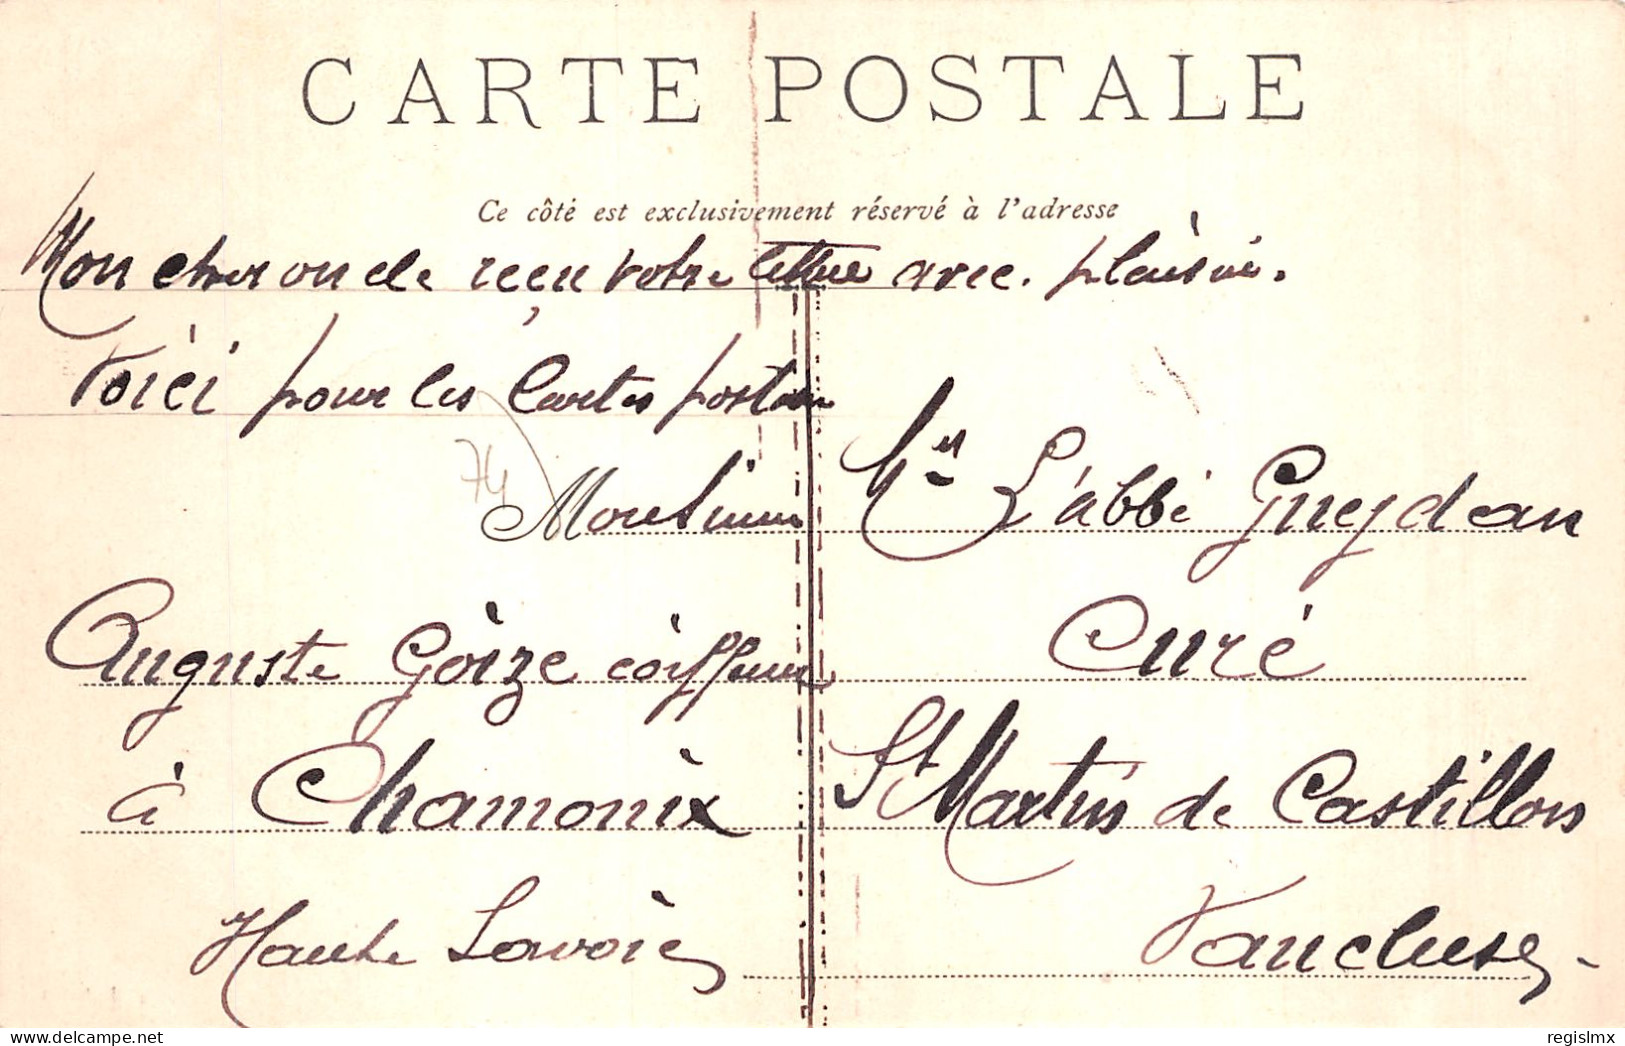 CARTE POSTALE
Ce côté est exclusivement réservé à l'adresse
Mon cher oncle reçu votre lettre avec plaisir.
Voici pour les Cartes postales
74
Monsieur
Auguste Goize coiffeur
à Chamonix
Haute Savoie
Mr L'abbé Gueydan
Curé
St Martin de Castillon
Vaucluse -
regislmx